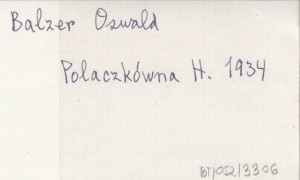 Balzer Oswald
Polaczkówna H. 1934
BT/052/3306